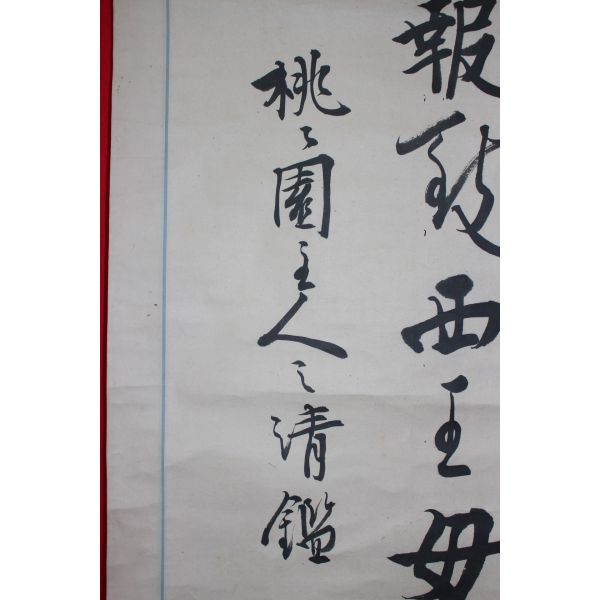 報致西王母
桃々園主人之清鑑